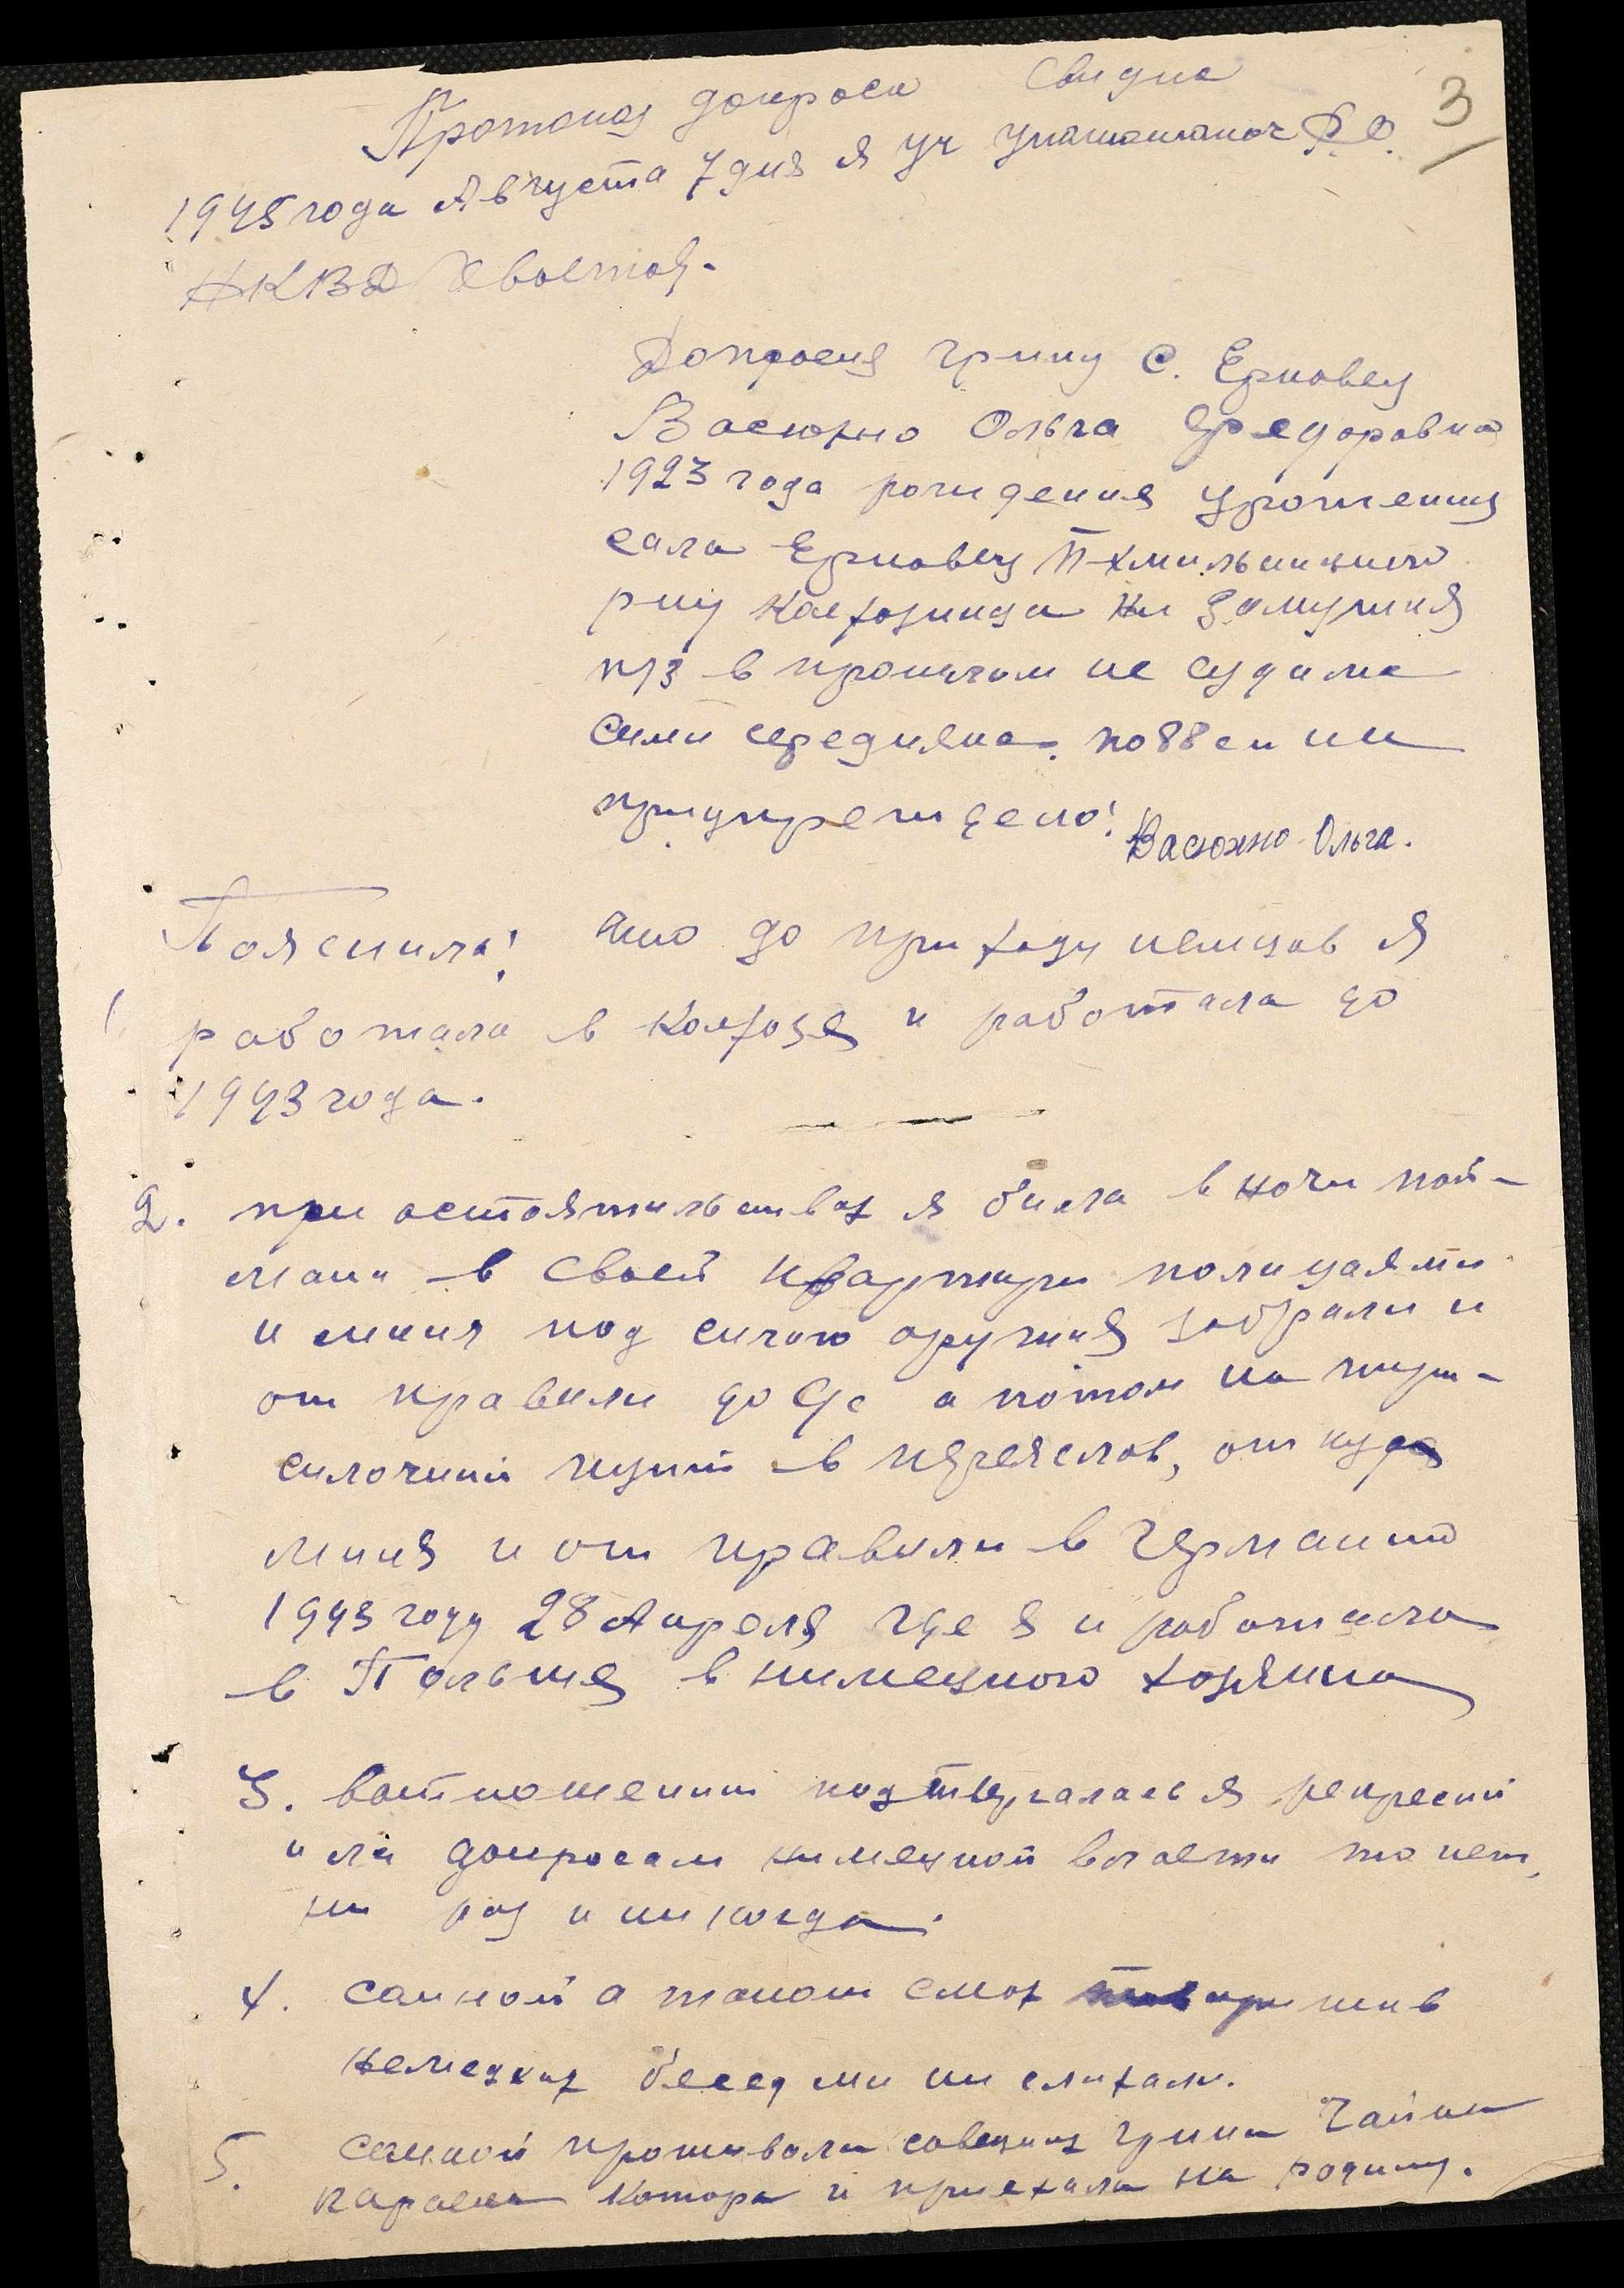 3
Протокол допроса Свидка
1945 года Августа 7 дня я уч уполномоч Р.О.
НКВД Хвостов.
Допросил гр-ку с. Ерковец
Васюхно Ольга Федоровна
1923 года рождения урожениц
села Ерковец П-Хмильницкого
р-ну колхозница ни замужния
н/з в прошлом не судима
сими середняка. по 88 ст ни
придупреждено! Васюхно Ольга.
Пояснила! что до приходу немцов я
работала в колхозе и работала до
1943 года.
2. при остоятильствах я была в ночи пой-
мана в своей квартири полицаями
и миня под силою оружия забрали и
от правили до с/с а потом на пири-
силочний пункт в переяслов, от куда
миня и от правили в Германию
1943 году 28 Апреля где я и работала
в Польше в нимецкого хозяина
3. вотношении подтвергалась я репресий
или допросам нимецкой власти то нет,
ни раз и никогда.
4. самной а таком смох против
немецких бесед ми ни слихали.
5. самной проживали совецких гр-ни Галина
Параска котора и приехала на родину.